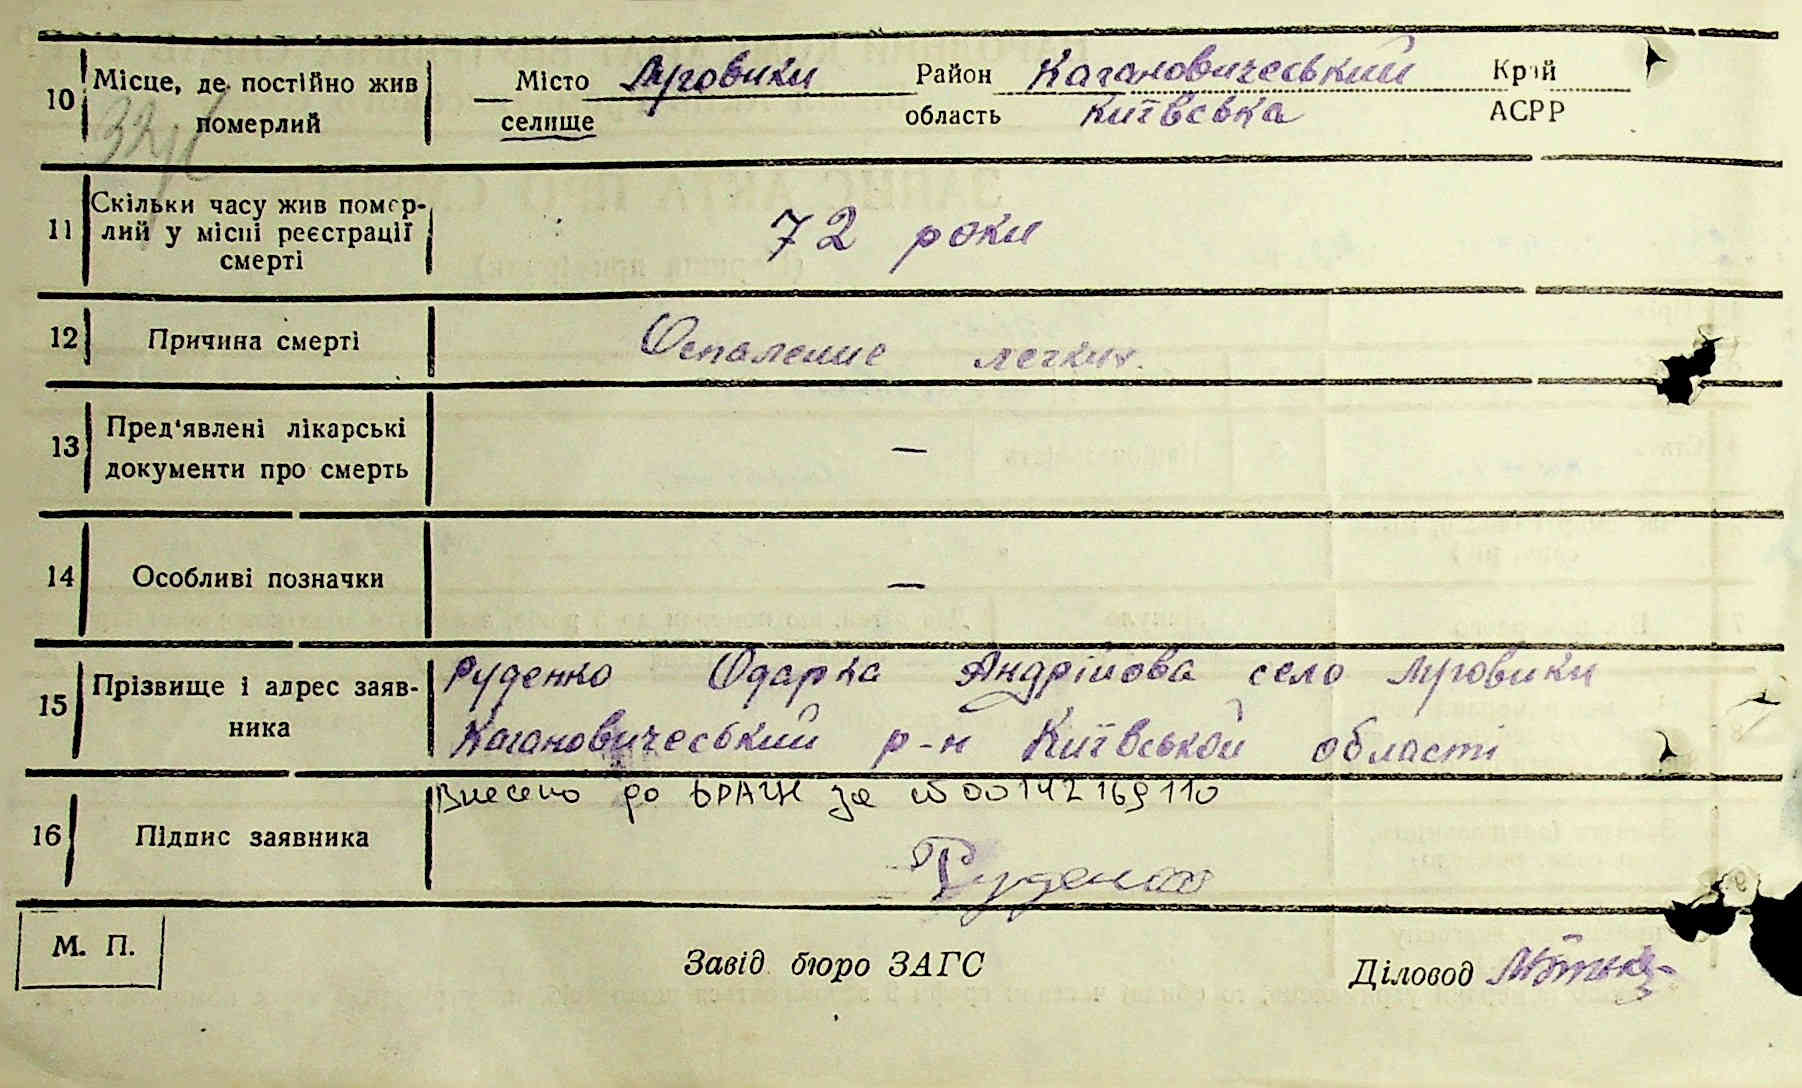 10 Місце, де постійно жив померлий
Місто Луговики Район Кагановичеський Край
селище область Київська АСРР
11 Скільки часу жив помер-
лий у місці реєстрації
смерті
72 роки
12 Причина смерті
Оспаление легких.
13 Пред'явлені лікарські
документи про смерть
—
14 Особливі позначки
—
15 Прізвище і адрес заяв-
ника
Руденко Одарка Андрійова село Луговики
Кагановичеський р-н Київськой області
Внесено до ДРАЦС за № 00142169110
16 Підпис заявника
Руденко
М. П.
Завід бюро ЗАГС
Діловод